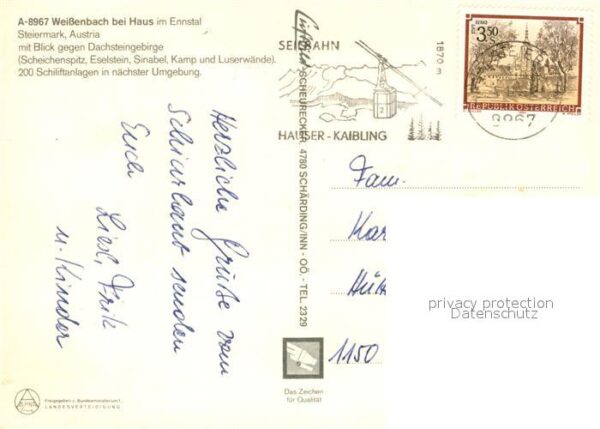 A-8967 Weißenbach bei Haus im Ennstal
Steiermark, Austria
mit Blick gegen Dachsteingebirge
(Scheichenspitz, Eselstein, Sinabel, Kamp und Luserwände).
200 Schiliftanlagen in nächster Umgebung.
Herzliche Grüße vom
Schiurlaub senden
Euch Liesl, Fritz
u. Kinder
SEILBAHN
1870 m
HAUSER-KAIBLING
3.50
REPUBLIK ÖSTERREICH
8967
SCHEURECKER, 4780 SCHÄRDING/INN - OÖ. - TEL. 2329
Fam.
Kar
Hüt
1150
privacy protection
Datenschutz
Das Zeichen
für Qualität
Freigegeben v. Bundesministerium f.
LANDESVERTEIDIGUNG